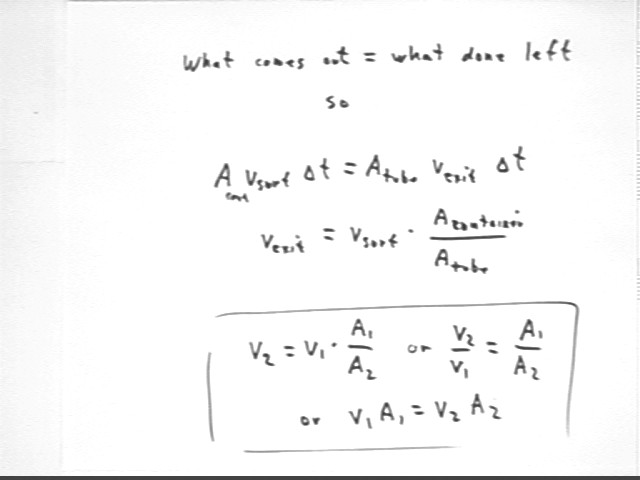 What comes out = what done left
so
A_cont V_surf Δt = A_tube V_exit Δt
V_exit = V_surf · A_container / A_tube
V₂ = V₁ · A₁ / A₂ or V₂ / V₁ = A₁ / A₂
or V₁ A₁ = V₂ A₂